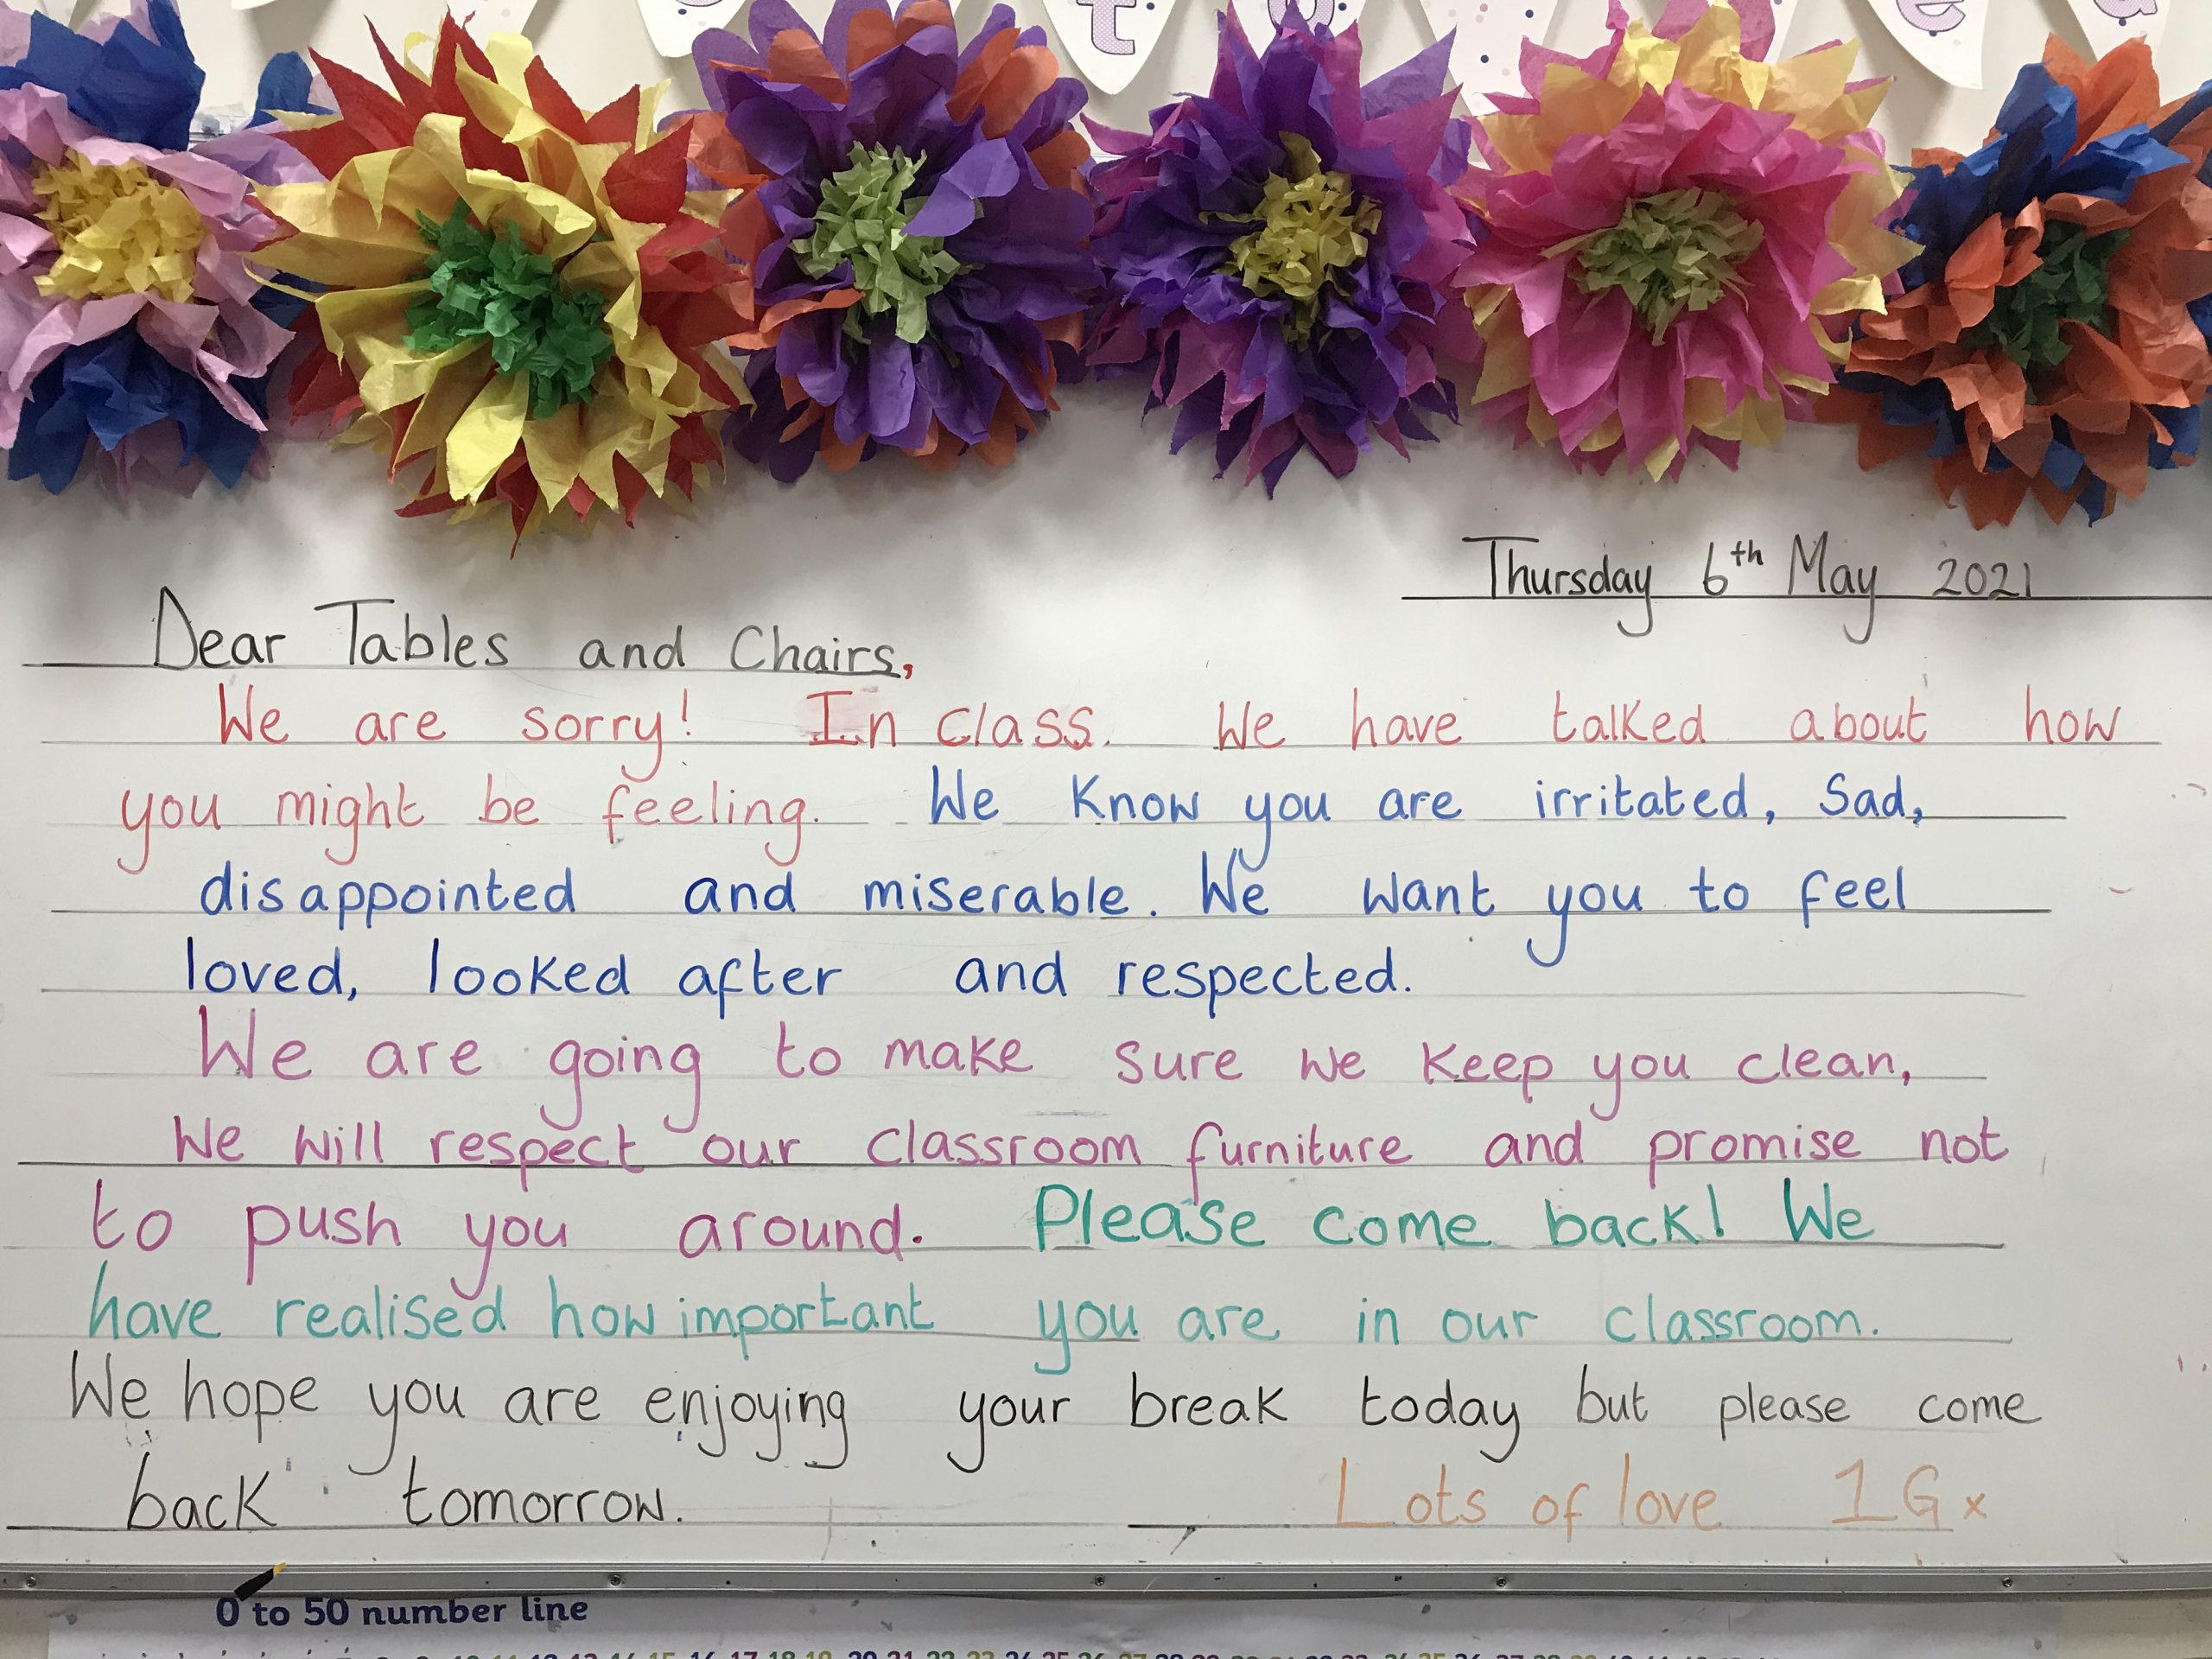 t o e d
Thursday 6th May 2021
Dear Tables and Chairs,
We are sorry! In class. We have talked about how
you might be feeling. We know you are irritated, sad,
disappointed and miserable. We want you to feel
loved, looked after and respected.
We are going to make sure we keep you clean,
we will respect our classroom furniture and promise not
to push you around. Please come back! We
have realised how important you are in our classroom.
We hope you are enjoying your break today but please come
back tomorrow.
Lots of love 1G x
0 to 50 number line